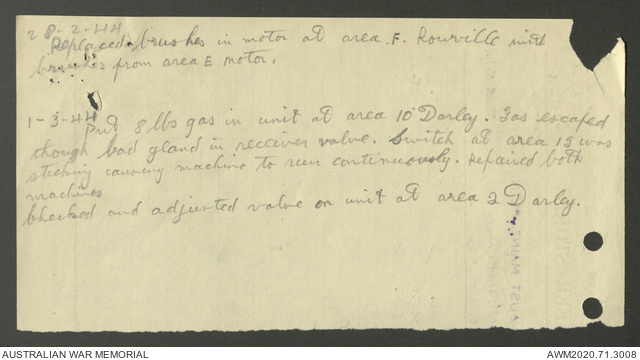 28-2-44
Replaced brushes in motor at area F. Rowville with
brushes from area E motor.
1-3-44
Put 8 lbs gas in unit at area 10 Darley. Gas escaped
though bad gland in receiver valve. Switch at area 15 was
sticking causing machine to run continuously. repaired both
machines
Checked and adjusted valve on unit at area 2 Darley.
AUSTRALIAN WAR MEMORIAL
AWM2020.71.3008